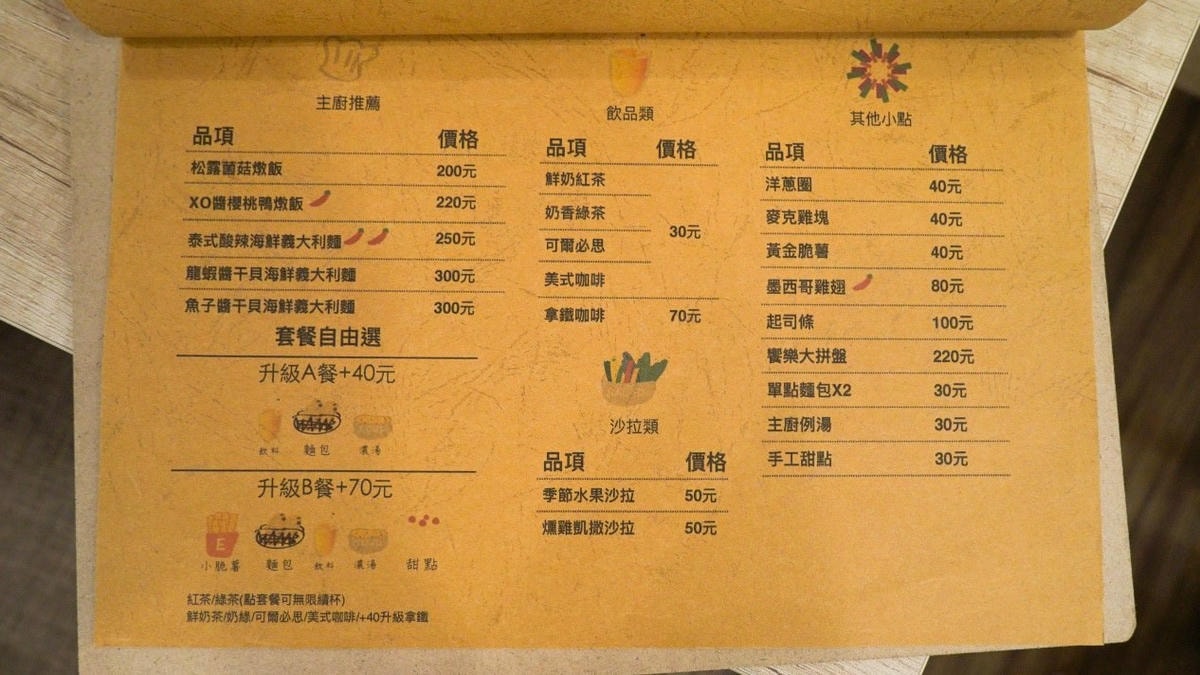 主廚推薦
品項 價格
松露菌菇燉飯 200元
XO醬櫻桃鴨燉飯 220元
泰式酸辣海鮮義大利麵 250元
龍蝦醬干貝海鮮義大利麵 300元
魚子醬干貝海鮮義大利麵 300元
套餐自由選
升級A餐+40元
飲料 麵包 濃湯
升級B餐+70元
E
小脆薯 麵包 飲料 濃湯 甜點
紅茶/綠茶(點套餐可無限續杯)
鮮奶茶/奶綠/可爾必思/美式咖啡/+40升級拿鐵
飲品類
品項 價格
鮮奶紅茶
奶香綠茶
30元
可爾必思
美式咖啡
拿鐵咖啡 70元
沙拉類
品項 價格
季節水果沙拉 50元
燻雞凱撒沙拉 50元
其他小點
品項 價格
洋蔥圈 40元
麥克雞塊 40元
黃金脆薯 40元
墨西哥雞翅 80元
起司條 100元
饗樂大拼盤 220元
單點麵包X2 30元
主廚例湯 30元
手工甜點 30元